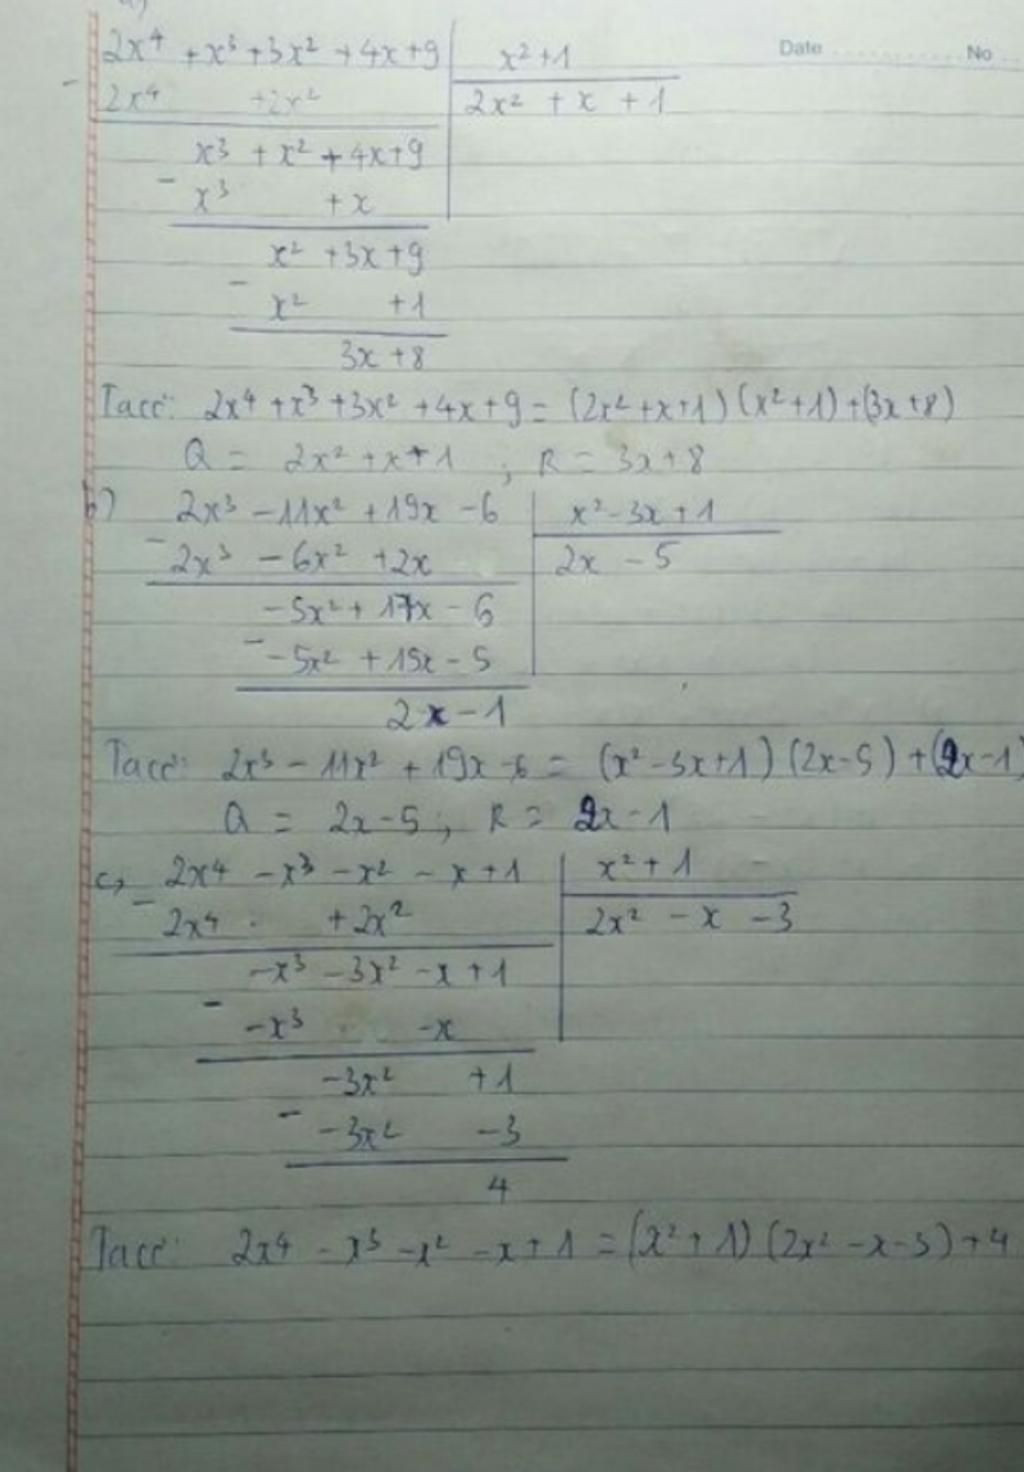 a)
Date ............ No ...
2x⁴ + x³ + 3x² + 4x + 9 | x² + 1
- 2x⁴ + 2x² | 2x² + x + 1
x³ + x² + 4x + 9
- x³ + x
x² + 3x + 9
- x² + 1
3x + 8
Ta có: 2x⁴ + x³ + 3x² + 4x + 9 = (2x² + x + 1) (x² + 1) + (3x + 8)
Q = 2x² + x + 1 , R = 3x + 8
b) 2x³ - 11x² + 19x - 6 | x² - 3x + 1
- 2x³ - 6x² + 2x | 2x - 5
-5x² + 17x - 6
- -5x² + 15x - 5
2x - 1
Ta có: 2x³ - 11x² + 19x - 6 = (x² - 3x + 1) (2x - 5) + (2x - 1)
Q = 2x - 5 , R = 2x - 1
c, 2x⁴ - x³ - x² - x + 1 | x² + 1
- 2x⁴ + 2x² | 2x² - x - 3
-x³ - 3x² - x + 1
- -x³ - x
-3x² + 1
- -3x² - 3
4
Ta có: 2x⁴ - x³ - x² - x + 1 = (x² + 1) (2x² - x - 3) + 4